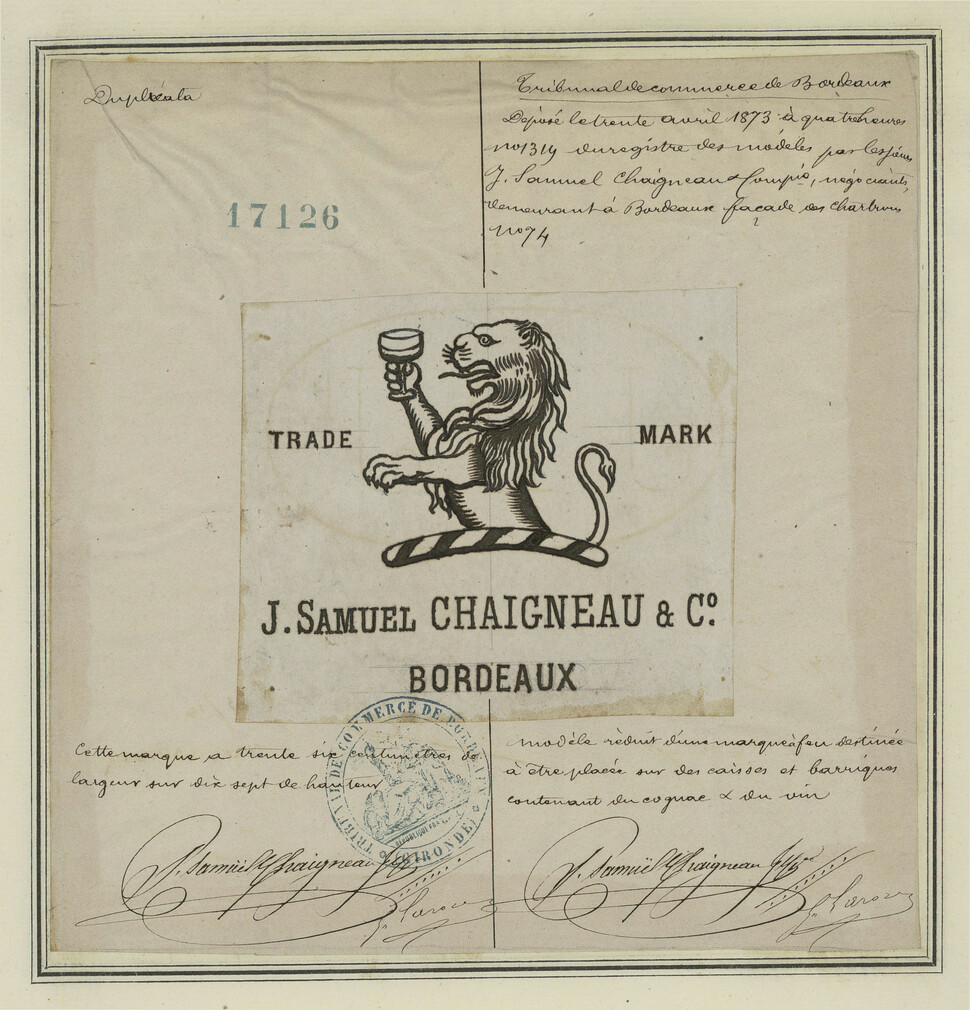 Duplicata
17126
Tribunal de commerce de Bordeaux
Déposé le trente avril 1873 à quatre heures
no 1319 du registre des modèles par les sieurs
J. Samuel Chaigneau & Compie, négociants,
demeurant à Bordeaux façade des Chartrons
no 74
TRADE MARK
J. SAMUEL CHAIGNEAU & Co.
BORDEAUX
Cette marque a trente six centimètres de
largeur sur dix sept de hauteur
TRIBUNAL DE COMMERCE DE BORDEAUX
(GIRONDE)
modèle réduit d'une marque à feu destinée
à être placée sur des caisses et barriques
contenant du cognac & du vin
J. Samuel Chaigneau
J. Samuel Chaigneau